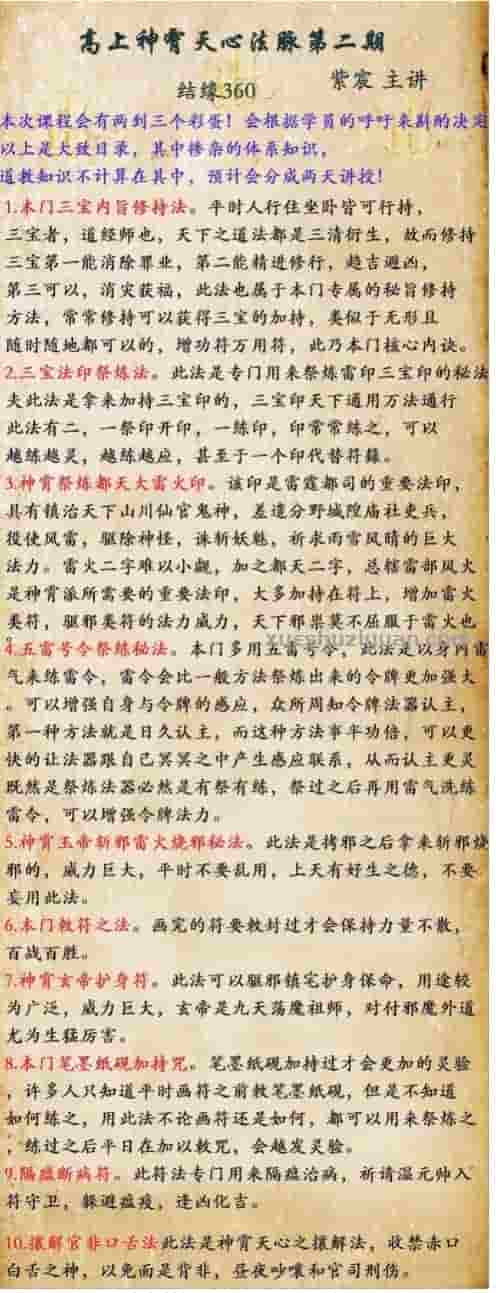 高上神霄天心法脉第二期
结缘360
紫宸 主讲
本次课程会有两到三个彩蛋！会根据学员的呼吁来斟酌决定
以上是大致目录，其中掺杂的体系知识，
道教知识不计算在其中，预计会分成两天讲授！
1.本门三宝内旨修持法。平时人行住坐卧皆可行持，
三宝者，道经师也，天下之道法都是三清衍生，故而修持
三宝第一能消除罪业，第二能精进修行，趋吉避凶，
第三可以，消灾获福，此法也属于本门专属的秘旨修持
方法，常常修持可以获得三宝的加持，类似于无形且
随时随地都可以的，增功符万用符，此乃本门核心内诀。
2.三宝法印祭炼法。此法是专门用来祭炼雷印三宝印的秘法
夫此法是拿来加持三宝印的，三宝印天下通用万法通行
此法有二，一祭印开印，一练印，印常常练之，可以
越练越灵，越练越应，甚至于一个印代替符籙。
3.神霄祭炼都天大雷火印。该印是雷霆都司的重要法印，
具有镇治天下山川仙官鬼神，差遣分野城隍庙社吏兵，
役使风雷，驱除神怪，诛斩妖魅，祈求雨雪风晴的巨大
法力。雷火二字难以小觑，加之都天二字，总辖雷部风火
是神霄派所需要的重要法印，大多加持在符上，增加雷火
类符，驱邪类符的法力威力，天下邪祟莫不屈服于雷火也
。
4.五雷号令祭练秘法。本门多用五雷号令，此法是以身内雷
气来练雷令，雷令会比一般方法祭炼出来的令牌更加强大
。可以增强自身与令牌的感应，众所周知令牌法器认主，
第一种方法就是日久认主，而这种方法事半功倍，可以更
快的让法器跟自己冥冥之中产生感应联系，从而认主更灵
既然是祭炼法器必然是有祭有练，祭过之后再用雷气洗练
雷令，可以增强令牌法力。
5.神霄玉帝斩邪雷火烧邪秘法。此法是拷邪之后拿来斩邪烧
邪的，威力巨大，平时不要乱用，上天有好生之德，不要
妄用此法。
6.本门敕符之法。画完的符要敕封过才会保持力量不散，
百战百胜。
7.神霄玄帝护身符。此法可以驱邪镇宅护身保命，用途较
为广泛，威力巨大，玄帝是九天荡魔祖师，对付邪魔外道
尤为生猛厉害。
8.本门笔墨纸砚加持咒。笔墨纸砚加持过才会更加的灵验
，许多人只知道平时画符之前敕笔墨纸砚，但是不知道
如何练之，用此法不论画符还是如何，都可以用来祭炼之
，练过之后平日在加以敕咒，会越发灵验。
9.隔瘟断病符。此符法专门用来隔瘟治病，祈请温元帅入
符守卫，躲避瘟疫，逢凶化吉。
10.禳解官非口舌法此法是神霄天心之禳解法，收禁赤口
白舌之神，以免面是背非，昼夜吵嚷和官司刑伤。